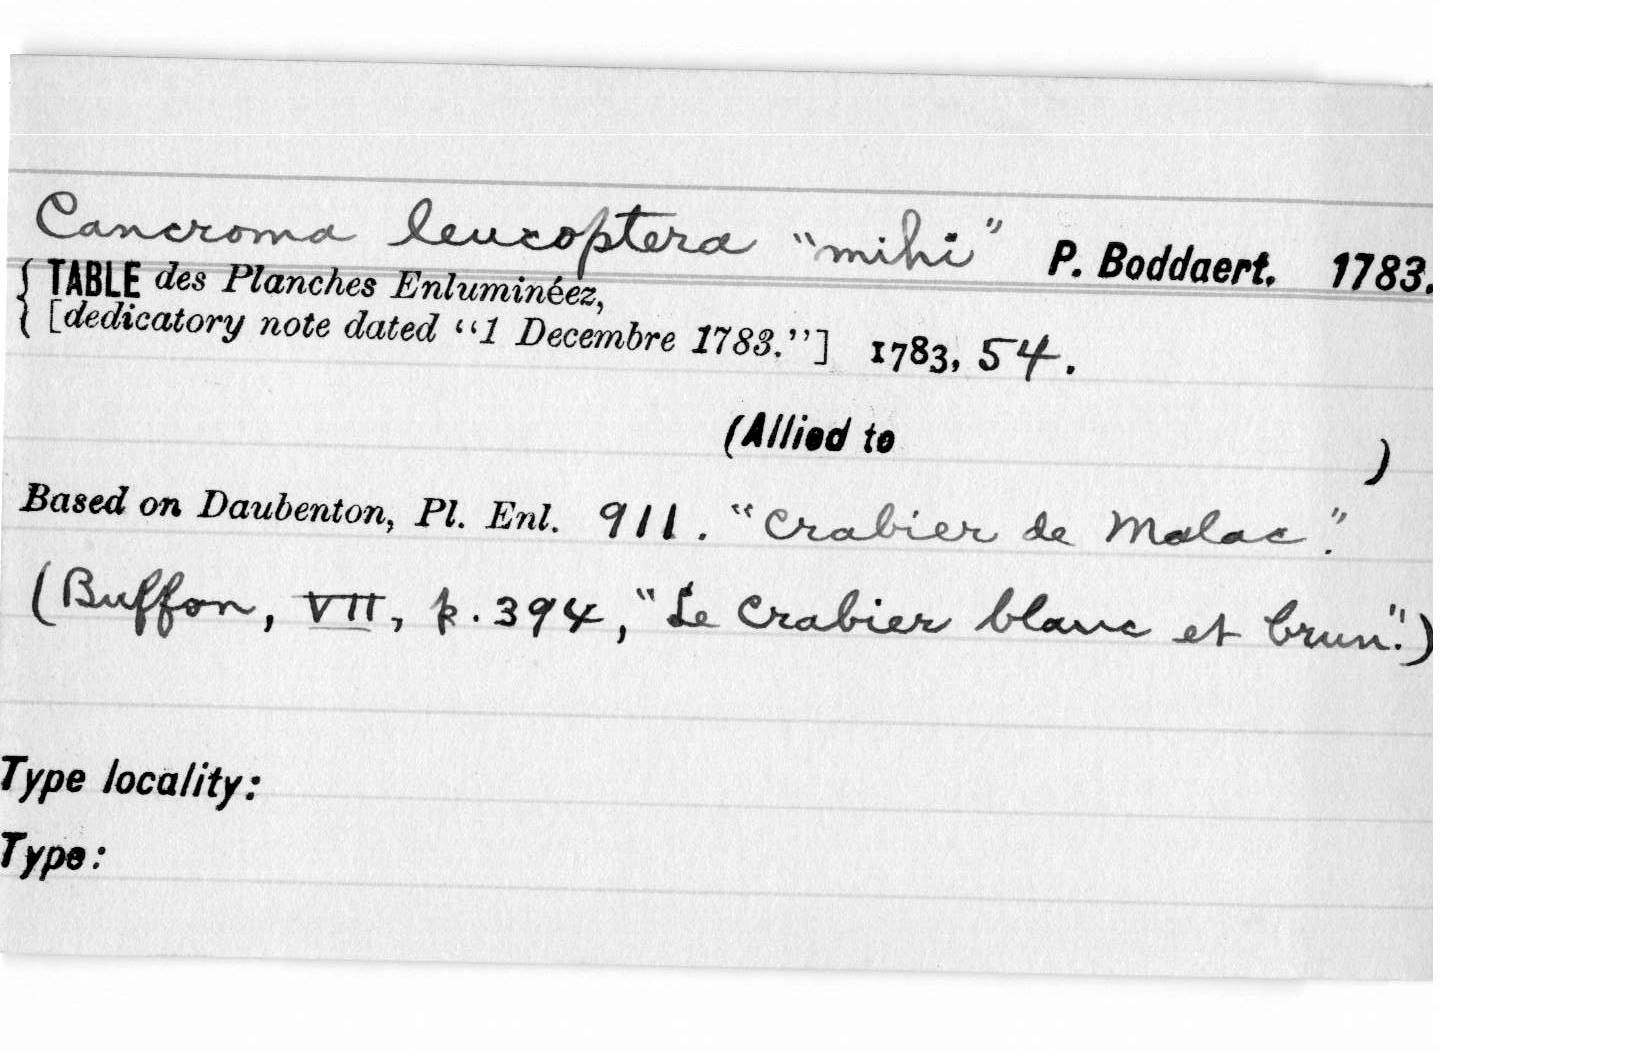 Cancroma leucoptera "mihi" P. Boddaert. 1783.
TABLE des Planches Enluminéez,
[dedicatory note dated "1 Decembre 1783."] 1783, 54.
(Allied to )
Based on Daubenton, Pl. Enl. 911. "Crabier de Malac".
(Buffon, VII, p. 394, "Le Crabier blanc et brun".)
Type locality:
Type: